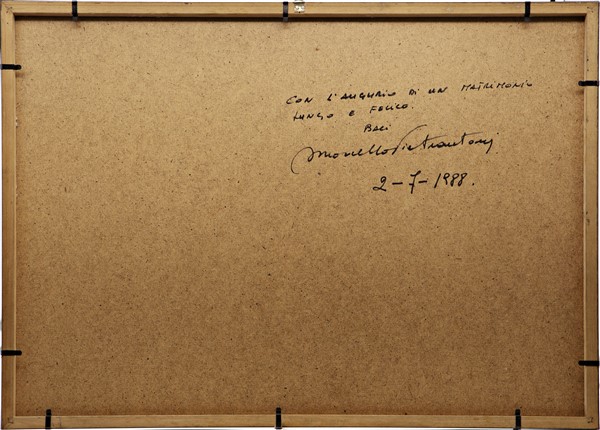 CON L'AUGURIO DI UN MATRIMONIO
LUNGO E FELICE.
BACI
Marcello Pietrantoni
2-7-1988.